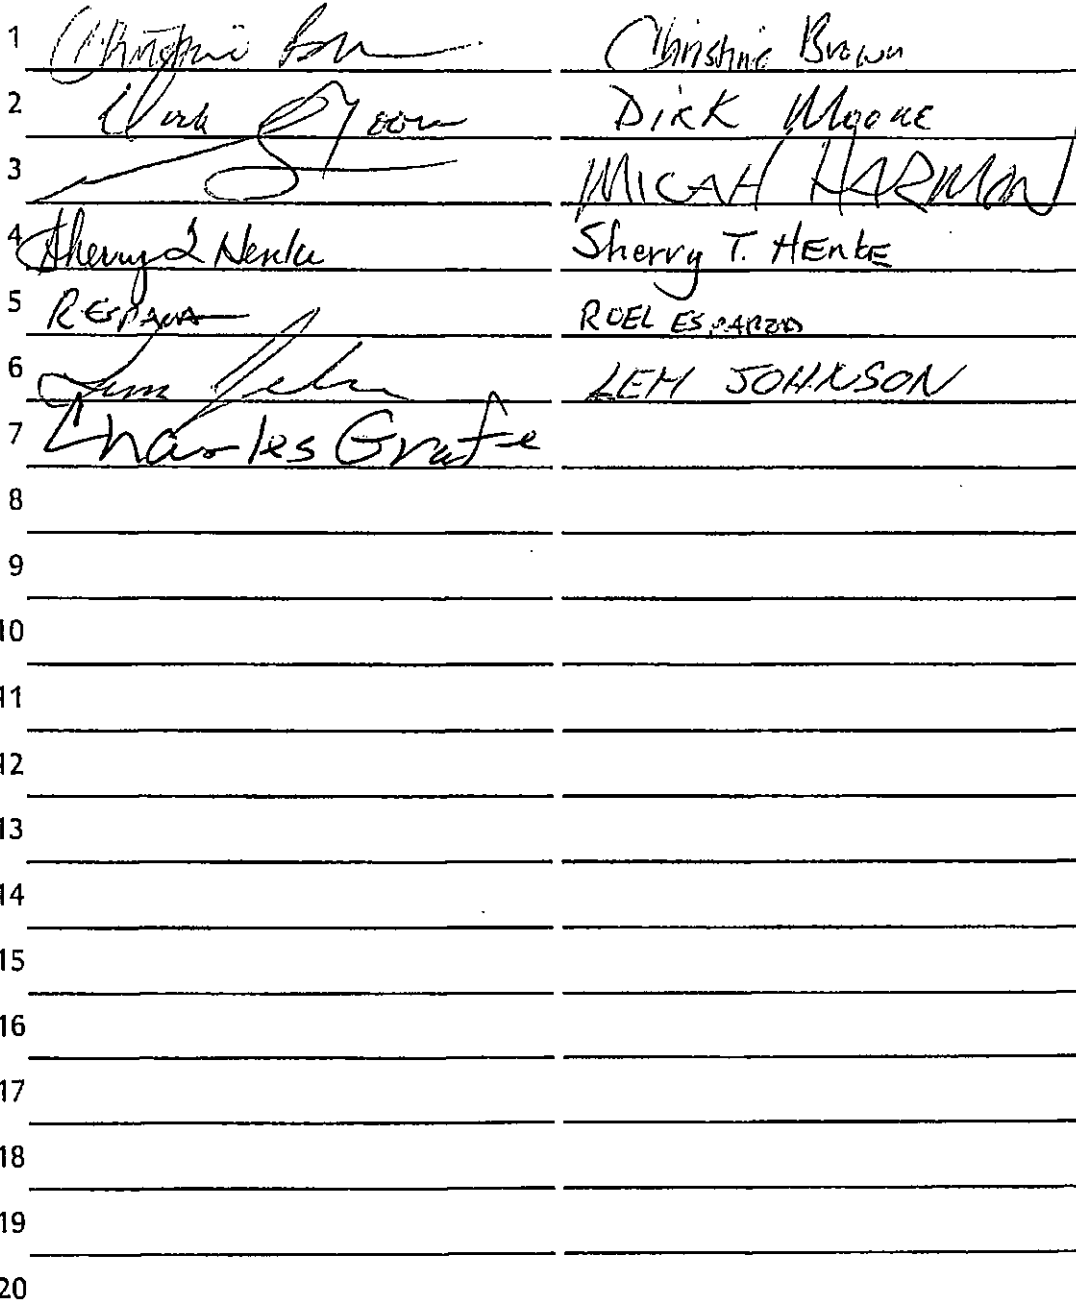 1 Christine Brown Christine Brown
2 Dirk Moore Dirk Moore
3 MICAH HARMON
4 Sherry T Henke Sherry T. HENKE
5 R ESPARZA ROEL ESPARZA
6 LEM JOHNSON
7 Charles Grafe
8
9
10
11
12
13
14
15
16
17
18
19
20